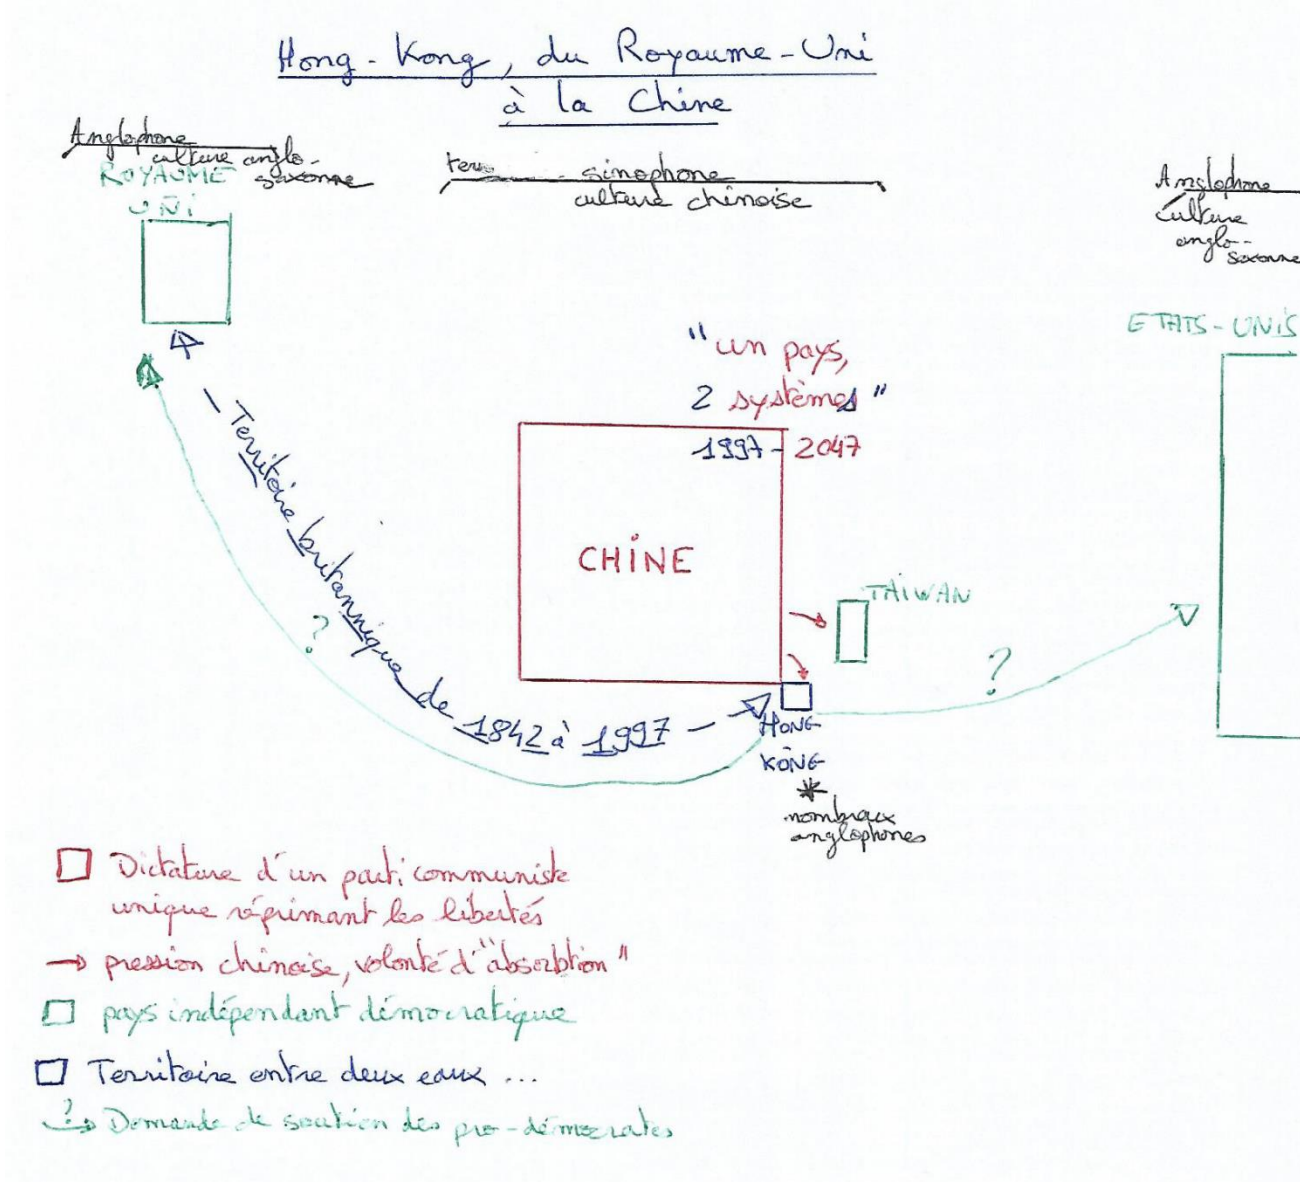 Hong-Kong, du Royaume-Uni
à la Chine
Anglophone
culture anglo-
saxonne
ROYAUME
UNI
sinophone
culture chinoise
Anglophone
culture
anglo-
saxonne
ETATS-UNIS
"un pays,
2 systèmes"
1997-2047
CHINE
TAIWAN
Territoire britannique de 1842 à 1997
?
?
HONG
KONG
*
nombreux
anglophones
Dictature d'un parti communiste
unique réprimant les libertés
→ pression chinoise, volonté d'"absorbtion"
pays indépendant démocratique
Territoire entre deux eaux ...
? Demande de soutien des pro-démocrates